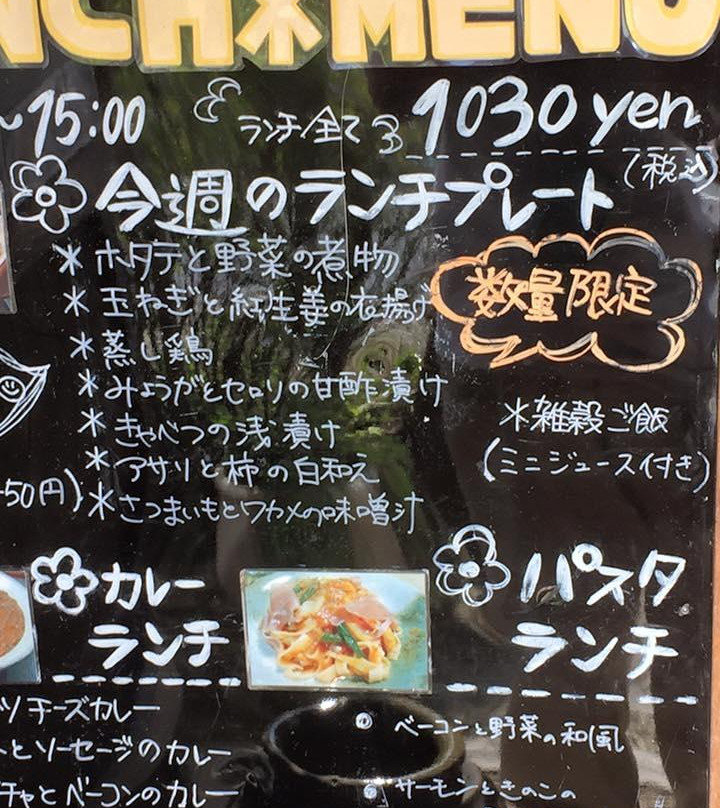 NCH MENU
~15:00 ランチ全て 1030 yen
(税込)
今週のランチプレート
* ホタテと野菜の煮物
* 玉ねぎと紅生姜の衣揚げ
数量限定
* 蒸し鶏
* みょうがとセロリの甘酢漬け
* きゃべつの浅漬け
* アサリと柿の白和え
* さつまいもとワカメの味噌汁
* 雑穀ご飯
(ミニジュース付き)
50円)
カレー
ランチ
パスタ
ランチ
ツチーズカレー
とソーセージのカレー
チャとベーコンのカレー
① ベーコンと野菜の和風
② サーモンときのこの